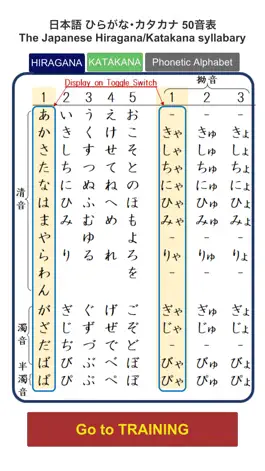 日本語 ひらがな・カタカナ 50音表
The Japanese Hiragana/Katakana syllabary
HIRAGANA KATAKANA Phonetic Alphabet
Display on Toggle Switch
拗音
1 2 3 4 5 1 2 3
清音
あ い う え お - - -
か き く け こ きゃ きゅ きょ
さ し す せ そ しゃ しゅ しょ
た ち つ て と ちゃ ちゅ ちょ
な に ぬ ね の にゃ にゅ にょ
は ひ ふ へ ほ ひゃ ひゅ ひょ
ま み む め も みゃ みゅ みょ
や ゆ よ - - -
ら り る れ ろ りゃ りゅ りょ
わ を - - -
ん
濁音
が ぎ ぐ げ ご ぎゃ ぎゅ ぎょ
ざ じ ず ぜ ぞ じゃ じゅ じょ
だ ぢ づ で ど - - -
ば び ぶ べ ぼ びゃ びゅ びょ
半濁音
ぱ ぴ ぷ ぺ ぽ ぴゃ ぴゅ ぴょ
Go to TRAINING